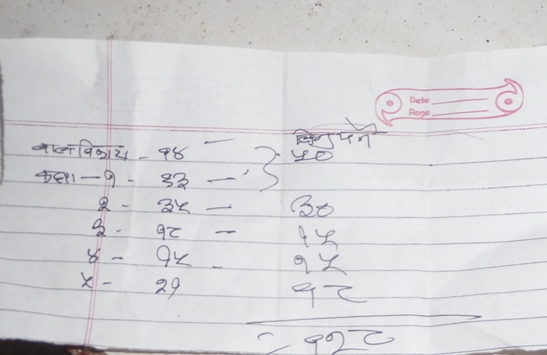 Date
Page
बालविकास - १४ — } ५०
कक्षा — १ - ३३ —
२ - ३५ — ३०
३ - १८ — १५
४ - १५ - १५
५ - २१ १८
= ११८